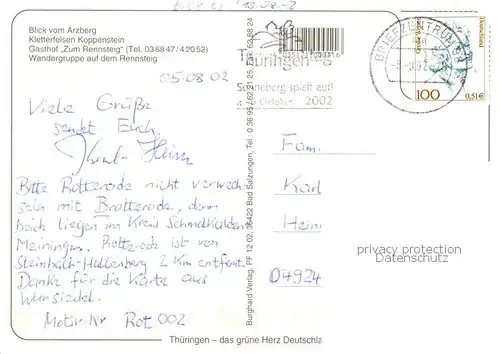 Blick vom Arzberg
Kletterfelsen Koppenstein
Gasthof „Zum Rennsteig" (Tel. 03 68 47 / 4 20 52)
Wandergruppe auf dem Rennsteig
05.08.02
Viele Grüße
sendet Euch
Bitte Rotterode nicht verwech
seln mit Brotterode, denn
beide liegen im Kreis Schmalkalden
Meiningen. Rotterode ist von
Steinbach-Hallenberg 2 Km entfernt.
Danke für die Karte aus
Wunsiedel.
Motiv Nr Rot 002
Burghard Verlag, PF 12 02, 36422 Bad Salzungen, Tel.: 0 36 95 / 62 21 25, Fax: 62 88 24
Thüringen
Sonneberg spielt auf!
Oktober 2002
BRIEFZENTRUM
Deutschland
100
0,51€
Fam.
Karl
Hein
04924
privacy protection
Datenschutz
Thüringen – das grüne Herz Deutschla